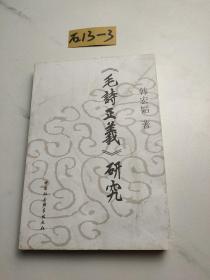 石13-3
《毛詩正義》研究
韩宏韬 著
中国社会科学出版社